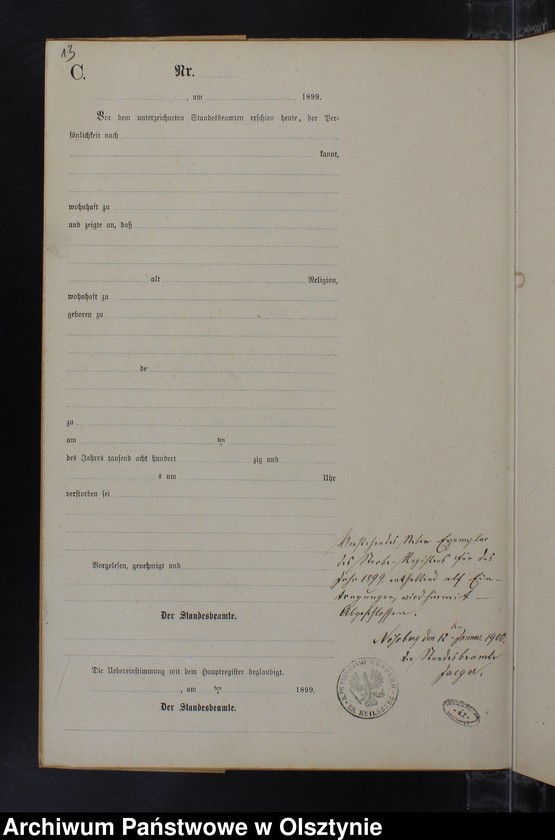 13
C.
Nr.
, am 1899.
Vor dem unterzeichneten Standesbeamten erschien heute, der Per-
sönlichkeit nach
kannt,
wohnhaft zu
und zeigte an, daß
alt Religion,
wohnhaft zu
geboren zu
de
zu
am ten
des Jahres tausend acht hundert zig und
s um Uhr
verstorben sei
Vorgelesen, genehmigt und
Der Standesbeamte.
Die Uebereinstimmung mit dem Hauptregister beglaubigt.
, am ten 1899.
Der Standesbeamte.
Vorstehendes Neben Exemplar
des Sterbe-Registers für das
Jahr 1899 enthaltend elf Ein-
tragungen, wird hiermit
Abgeschlossen.
den 12 Januar 1900.
Der Standesbeamte
Jaeger.
KR. HEILSBERG
Archiwum Państwowe w Olsztynie